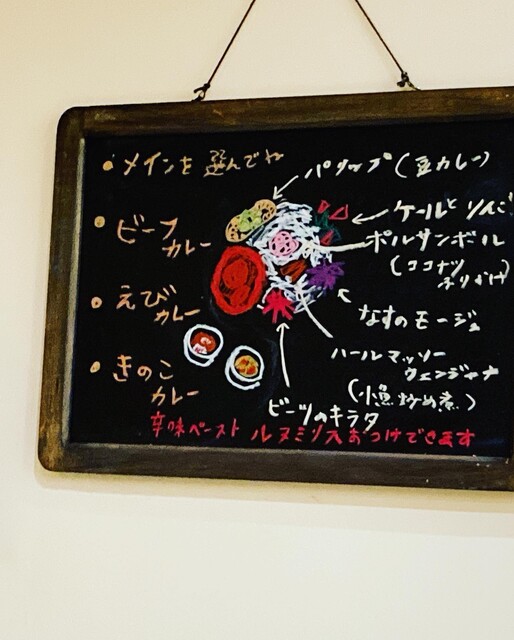 ・メインを 選んでね
・ビーフ
カレー
・えび
カレー
・きのこ
カレー
パリップ(豆カレー)
ケールと りんご
ポルサンボール
(ココナツ
ふりかけ)
なすのモージュ
ハールマッソー
ウェンジャナ
(小魚炒め煮)
ビーツのキラタ
辛味ペースト ルヌミリスおつけできます